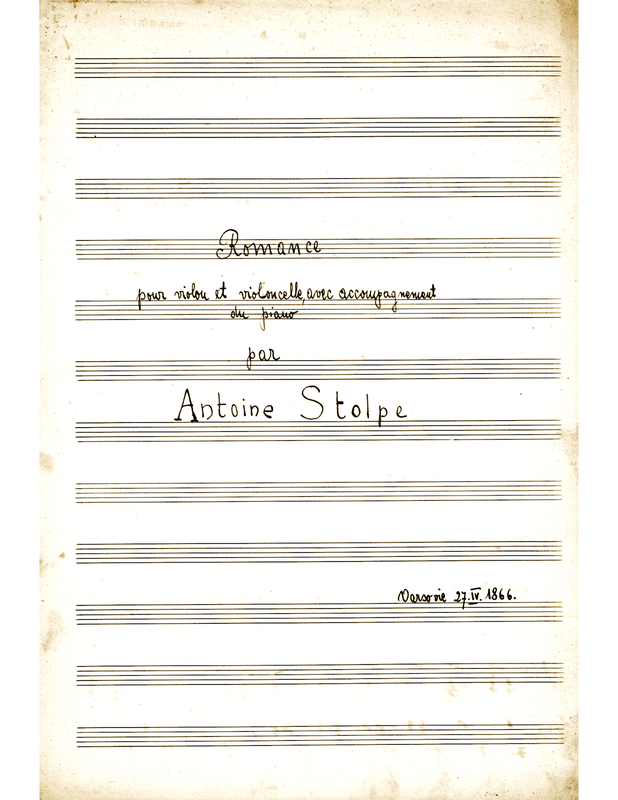 Romance
pour violon et violoncelle, avec accompagnement
du piano
par
Antoine Stolpe
Varsovie 27.IV.1866.